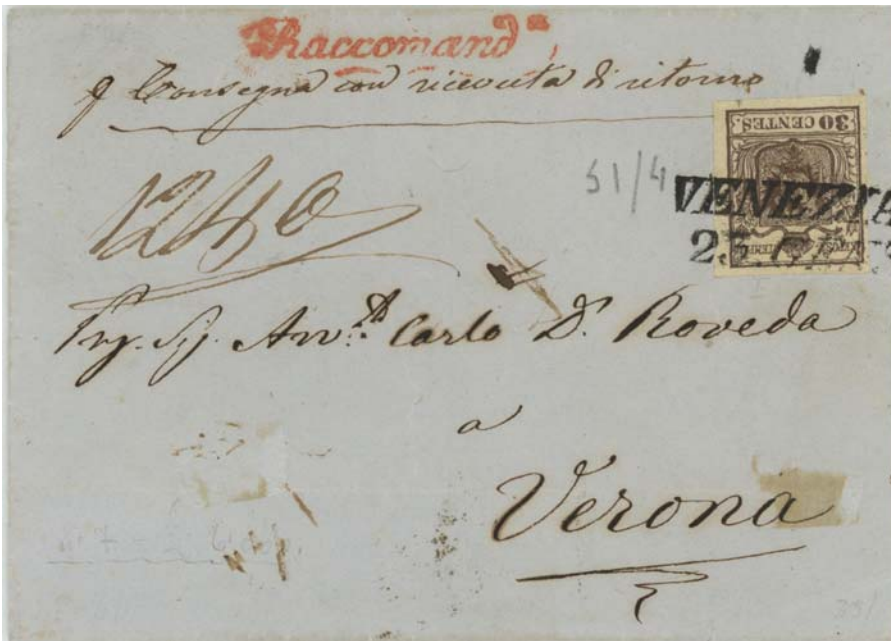 Raccomand.ª
p Consegna con ricevuta di ritorno
30 CENTES.
51/4
VENEZIA
1240
Preg. Sig. Avv.to Carlo Dr. Roveda
a
Verona